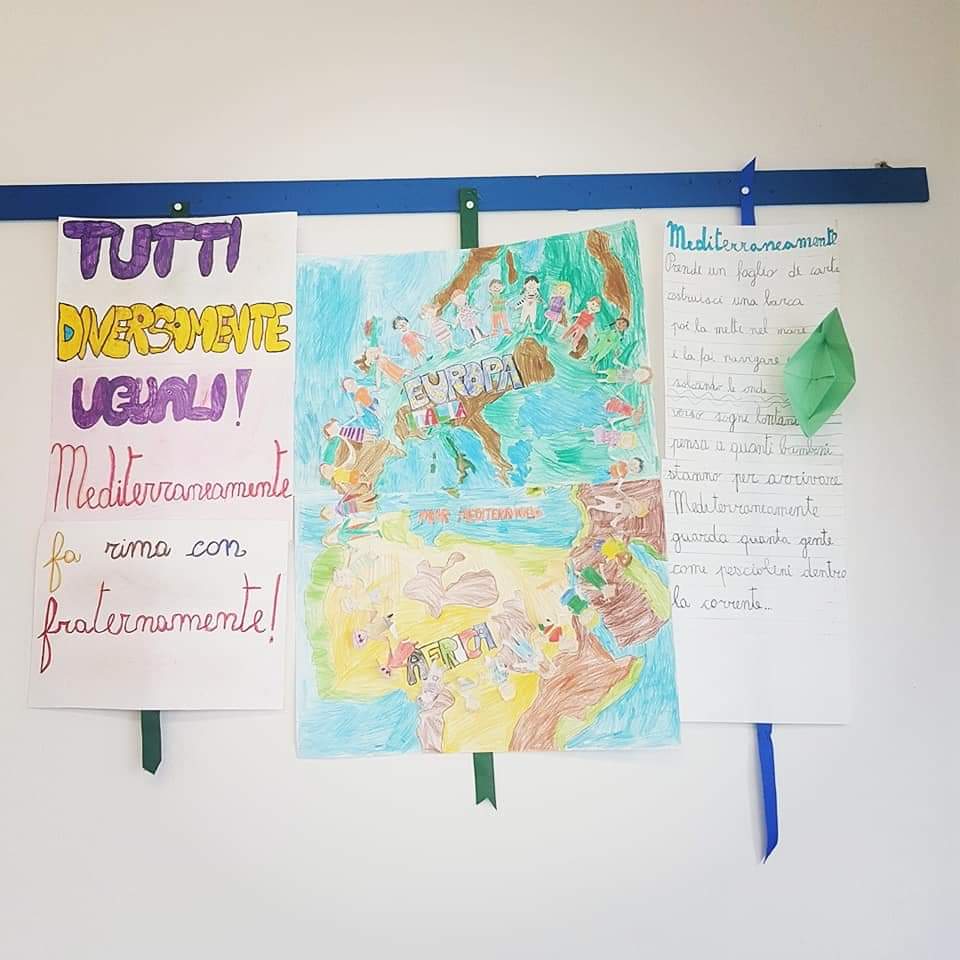 TUTTI
DIVERSAMENTE
UGUALI!
Mediterraneamente
fa rima con
fraternamente!
EUROPA
ITALIA
MAR MEDITERRANEO
AFRICA
Mediterraneamente
Prende un foglio de carta
costruisci una barca
poi la mette nel mare
e la fai navigare
solcando le onde
verso sogni lontani
pensa a quanti bambini
stanno per arrivare
Mediterraneamente
guarda quanta gente
come pesciolini dentro
la corrente...